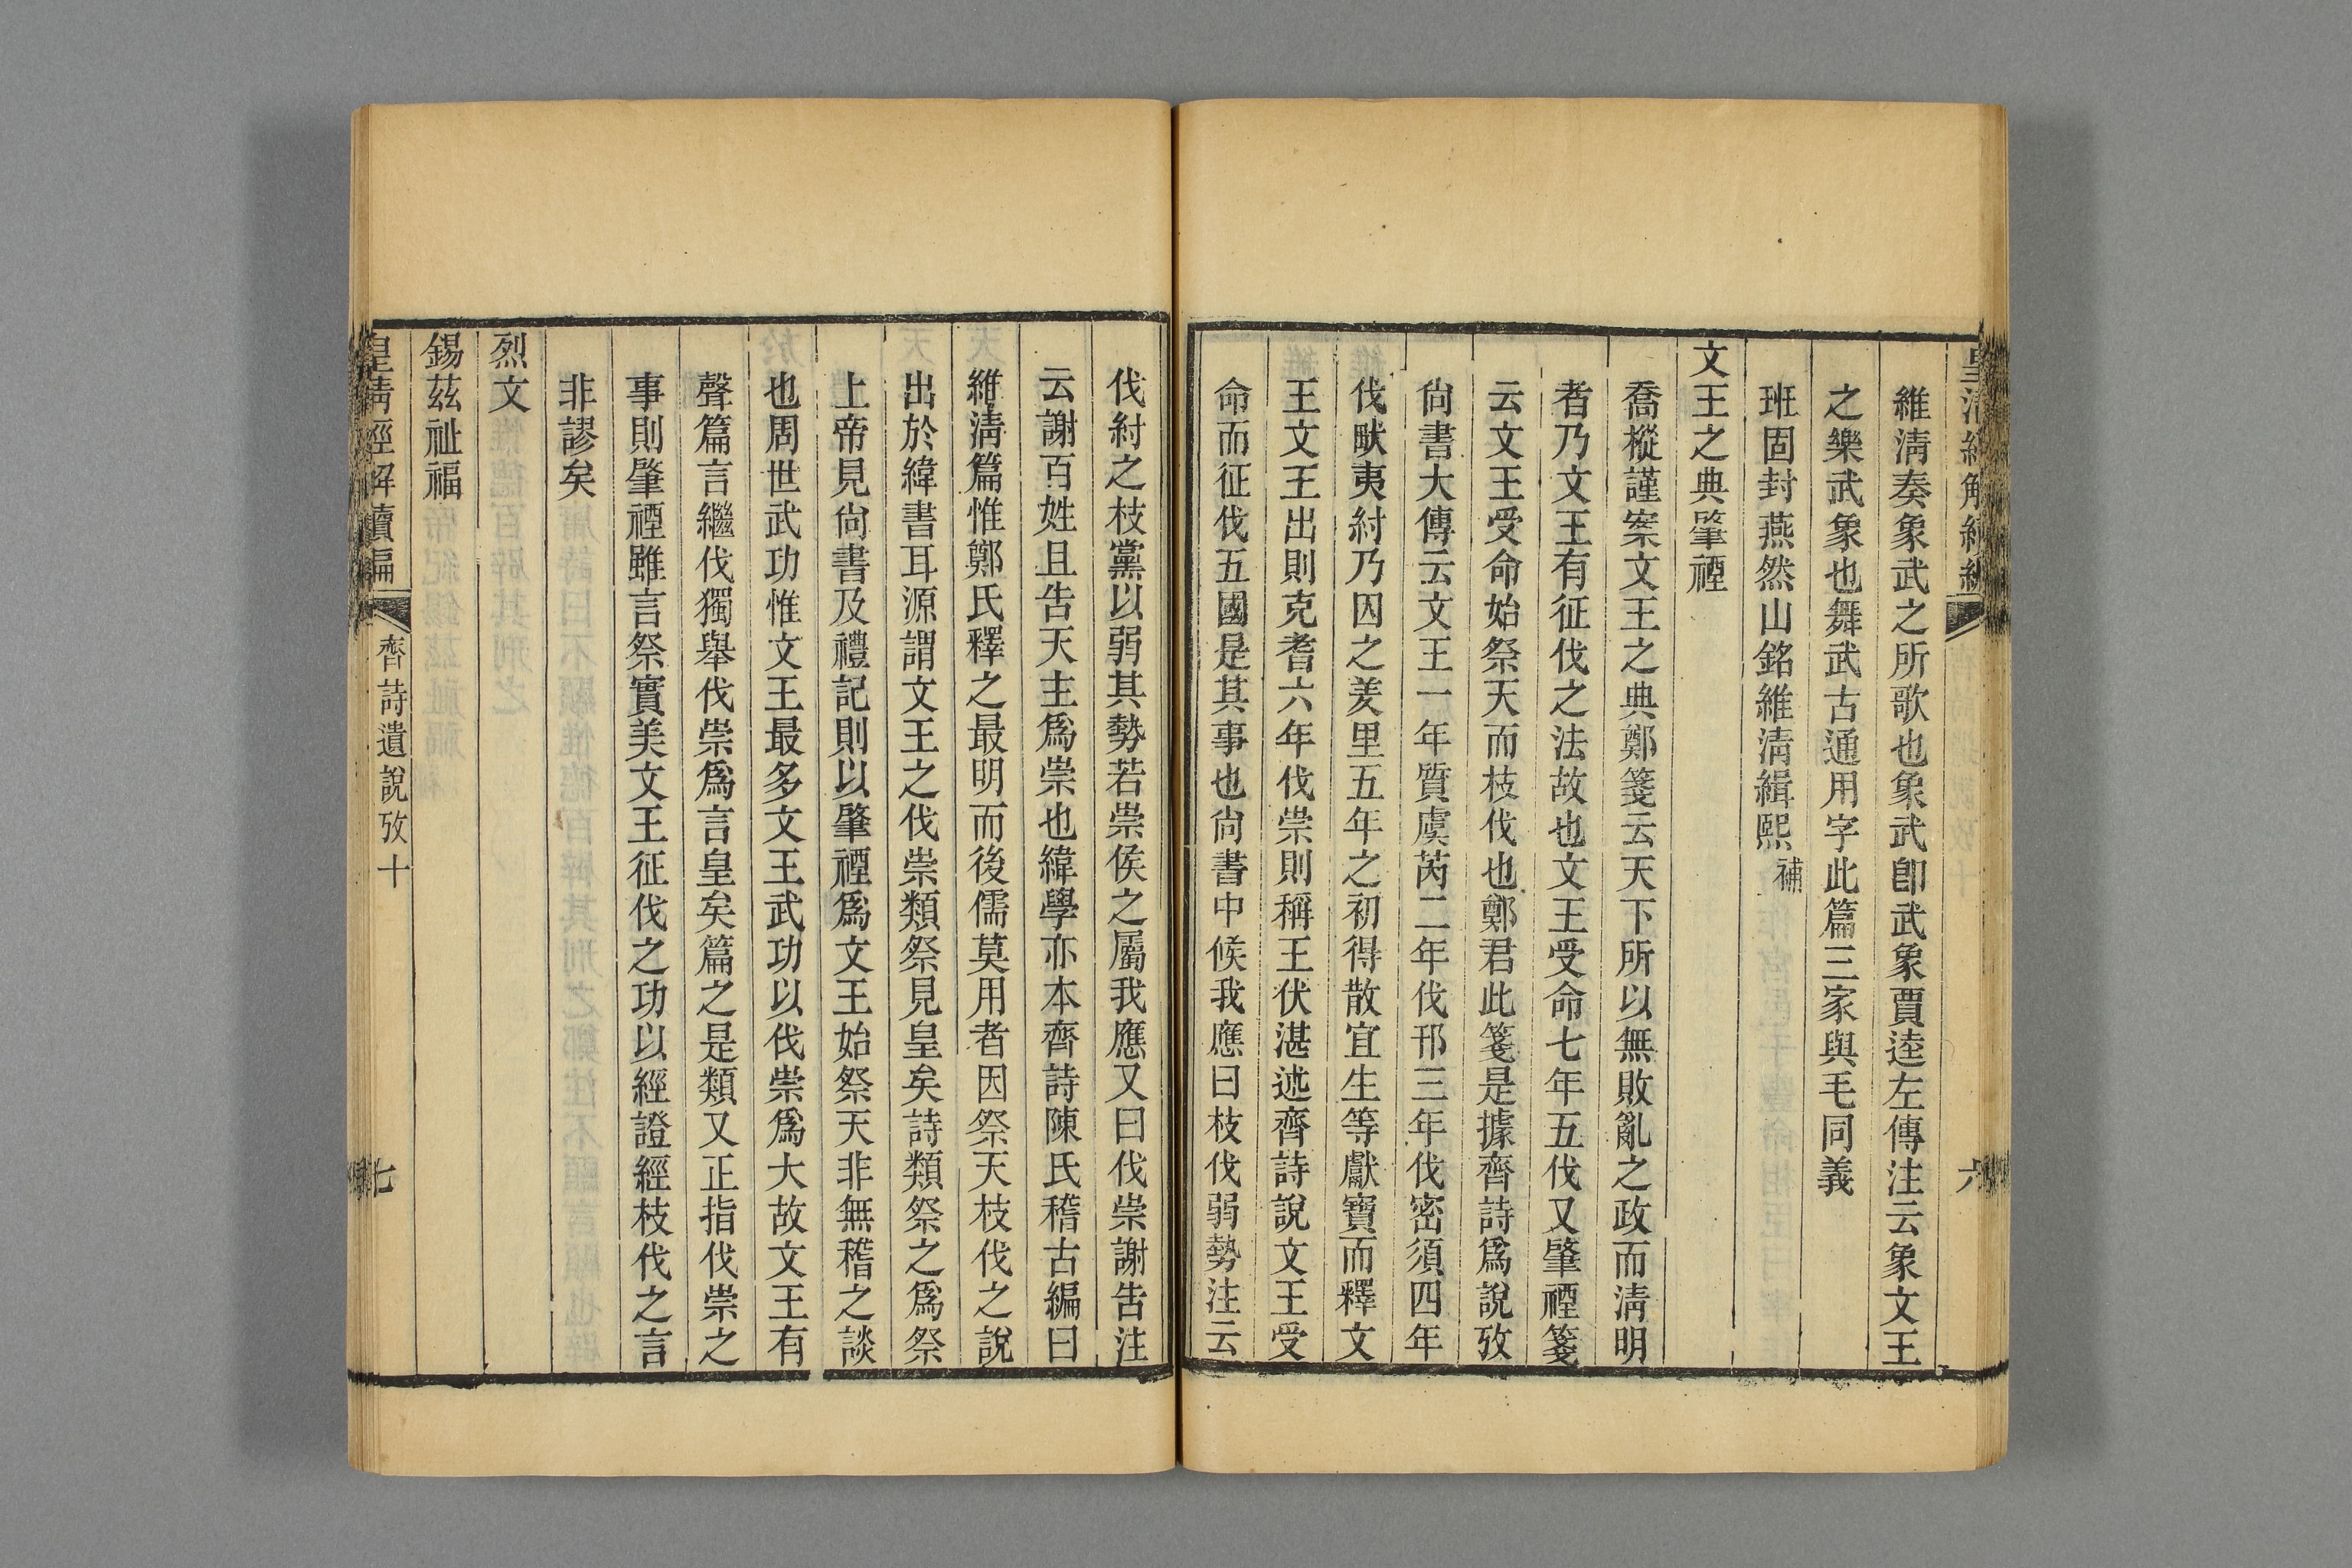 皇清經解續編
六
維淸奏象武之所歌也象武卽武象賈逵左傳注云象文王
之樂武象也舞武古通用字此篇三家與毛同義
班固封燕然山銘維淸緝熙補
文王之典肇禋
喬樅謹案文王之典鄭箋云天下所以無敗亂之政而淸明
者乃文王有征伐之法故也文王受命七年五伐又肇禋箋
云文王受命始祭天而枝伐也鄭君此箋是據齊詩爲說攷
尙書大傳云文王一年質虞芮二年伐邘三年伐密須四年
伐畎夷紂乃囚之羑里五年之初得散宜生等獻寶而釋文
王文王出則克耆六年伐崇則稱王伏湛述齊詩說文王受
命而征伐五國是其事也尙書中候我應曰枝伐弱勢注云
伐紂之枝黨以弱其勢若崇侯之屬我應又曰伐崇謝告注
云謝百姓且告天主爲崇也緯學亦本齊詩陳氏稽古編曰
維淸篇惟鄭氏釋之最明而後儒莫用者因祭天枝伐之說
出於緯書耳源謂文王之伐崇類祭見皇矣詩類祭之爲祭
上帝見尙書及禮記則以肇禋爲文王始祭天非無稽之談
也周世武功惟文王最多文王武功以伐崇爲大故文王有
聲篇言繼伐獨舉伐崇爲言皇矣篇之是類又正指伐崇之
事則肇禋雖言祭實美文王征伐之功以經證經枝伐之言
非謬矣
烈文
錫茲祉福
皇淸經解續編
齊詩遺說攷十
七